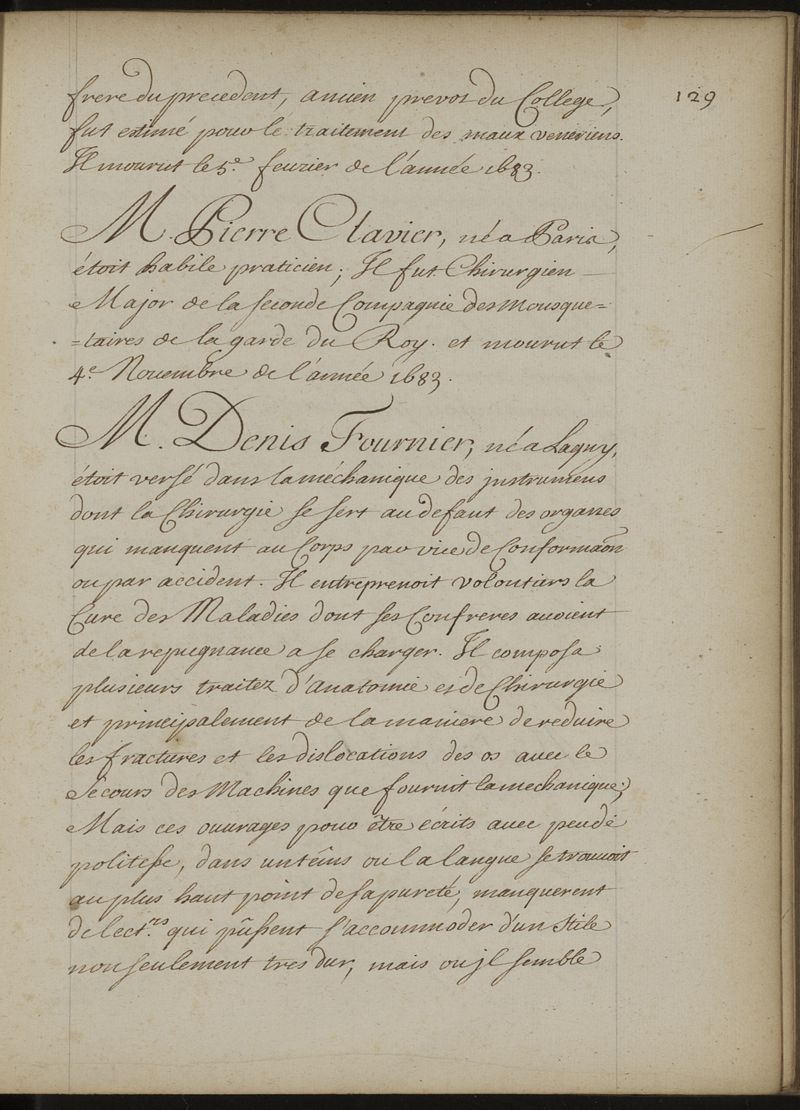 129
frere du precedent, ancien prevot du College,
fut estimé pour le traitement des maux veneriens.
Il mourut le 5.e feurier de l'année 1683.
M. Pierre Clavier, né a Paris,
étoit habile praticien; Il fut Chirurgien
Major de la seconde Compagnie des Mousque=
=taires de la garde du Roy. et mourut le
4.e Nouembre de l'année 1683.
M. Denis Fournier, né a Lagny,
étoit versé dans la méchanique des jnstrumens
dont la Chirurgie se sert au defaut des organes
qui manquent au Corps par vice de Conformaõn
ou par accident. Il entreprenoit volontiers la
Cure des Maladies dont ses Confreres auoient
de la repugnance a se charger. Il composa
plusieurs traitez d'anatomie et de Chirurgie
et principalement de la maniere de reduire
les fractures et les dislocations des os auec le
Secours des Machines que fournit la mechanique;
Mais ces ouvrages pour être écrits auec peu de
politesse, dans un têms ou la langue se trouuoit
au plus haut point de sa pureté, manquerent
de lect.rs qui pûssent s'accommoder d'un Stile
non seulement tres dur, mais ou jl semble